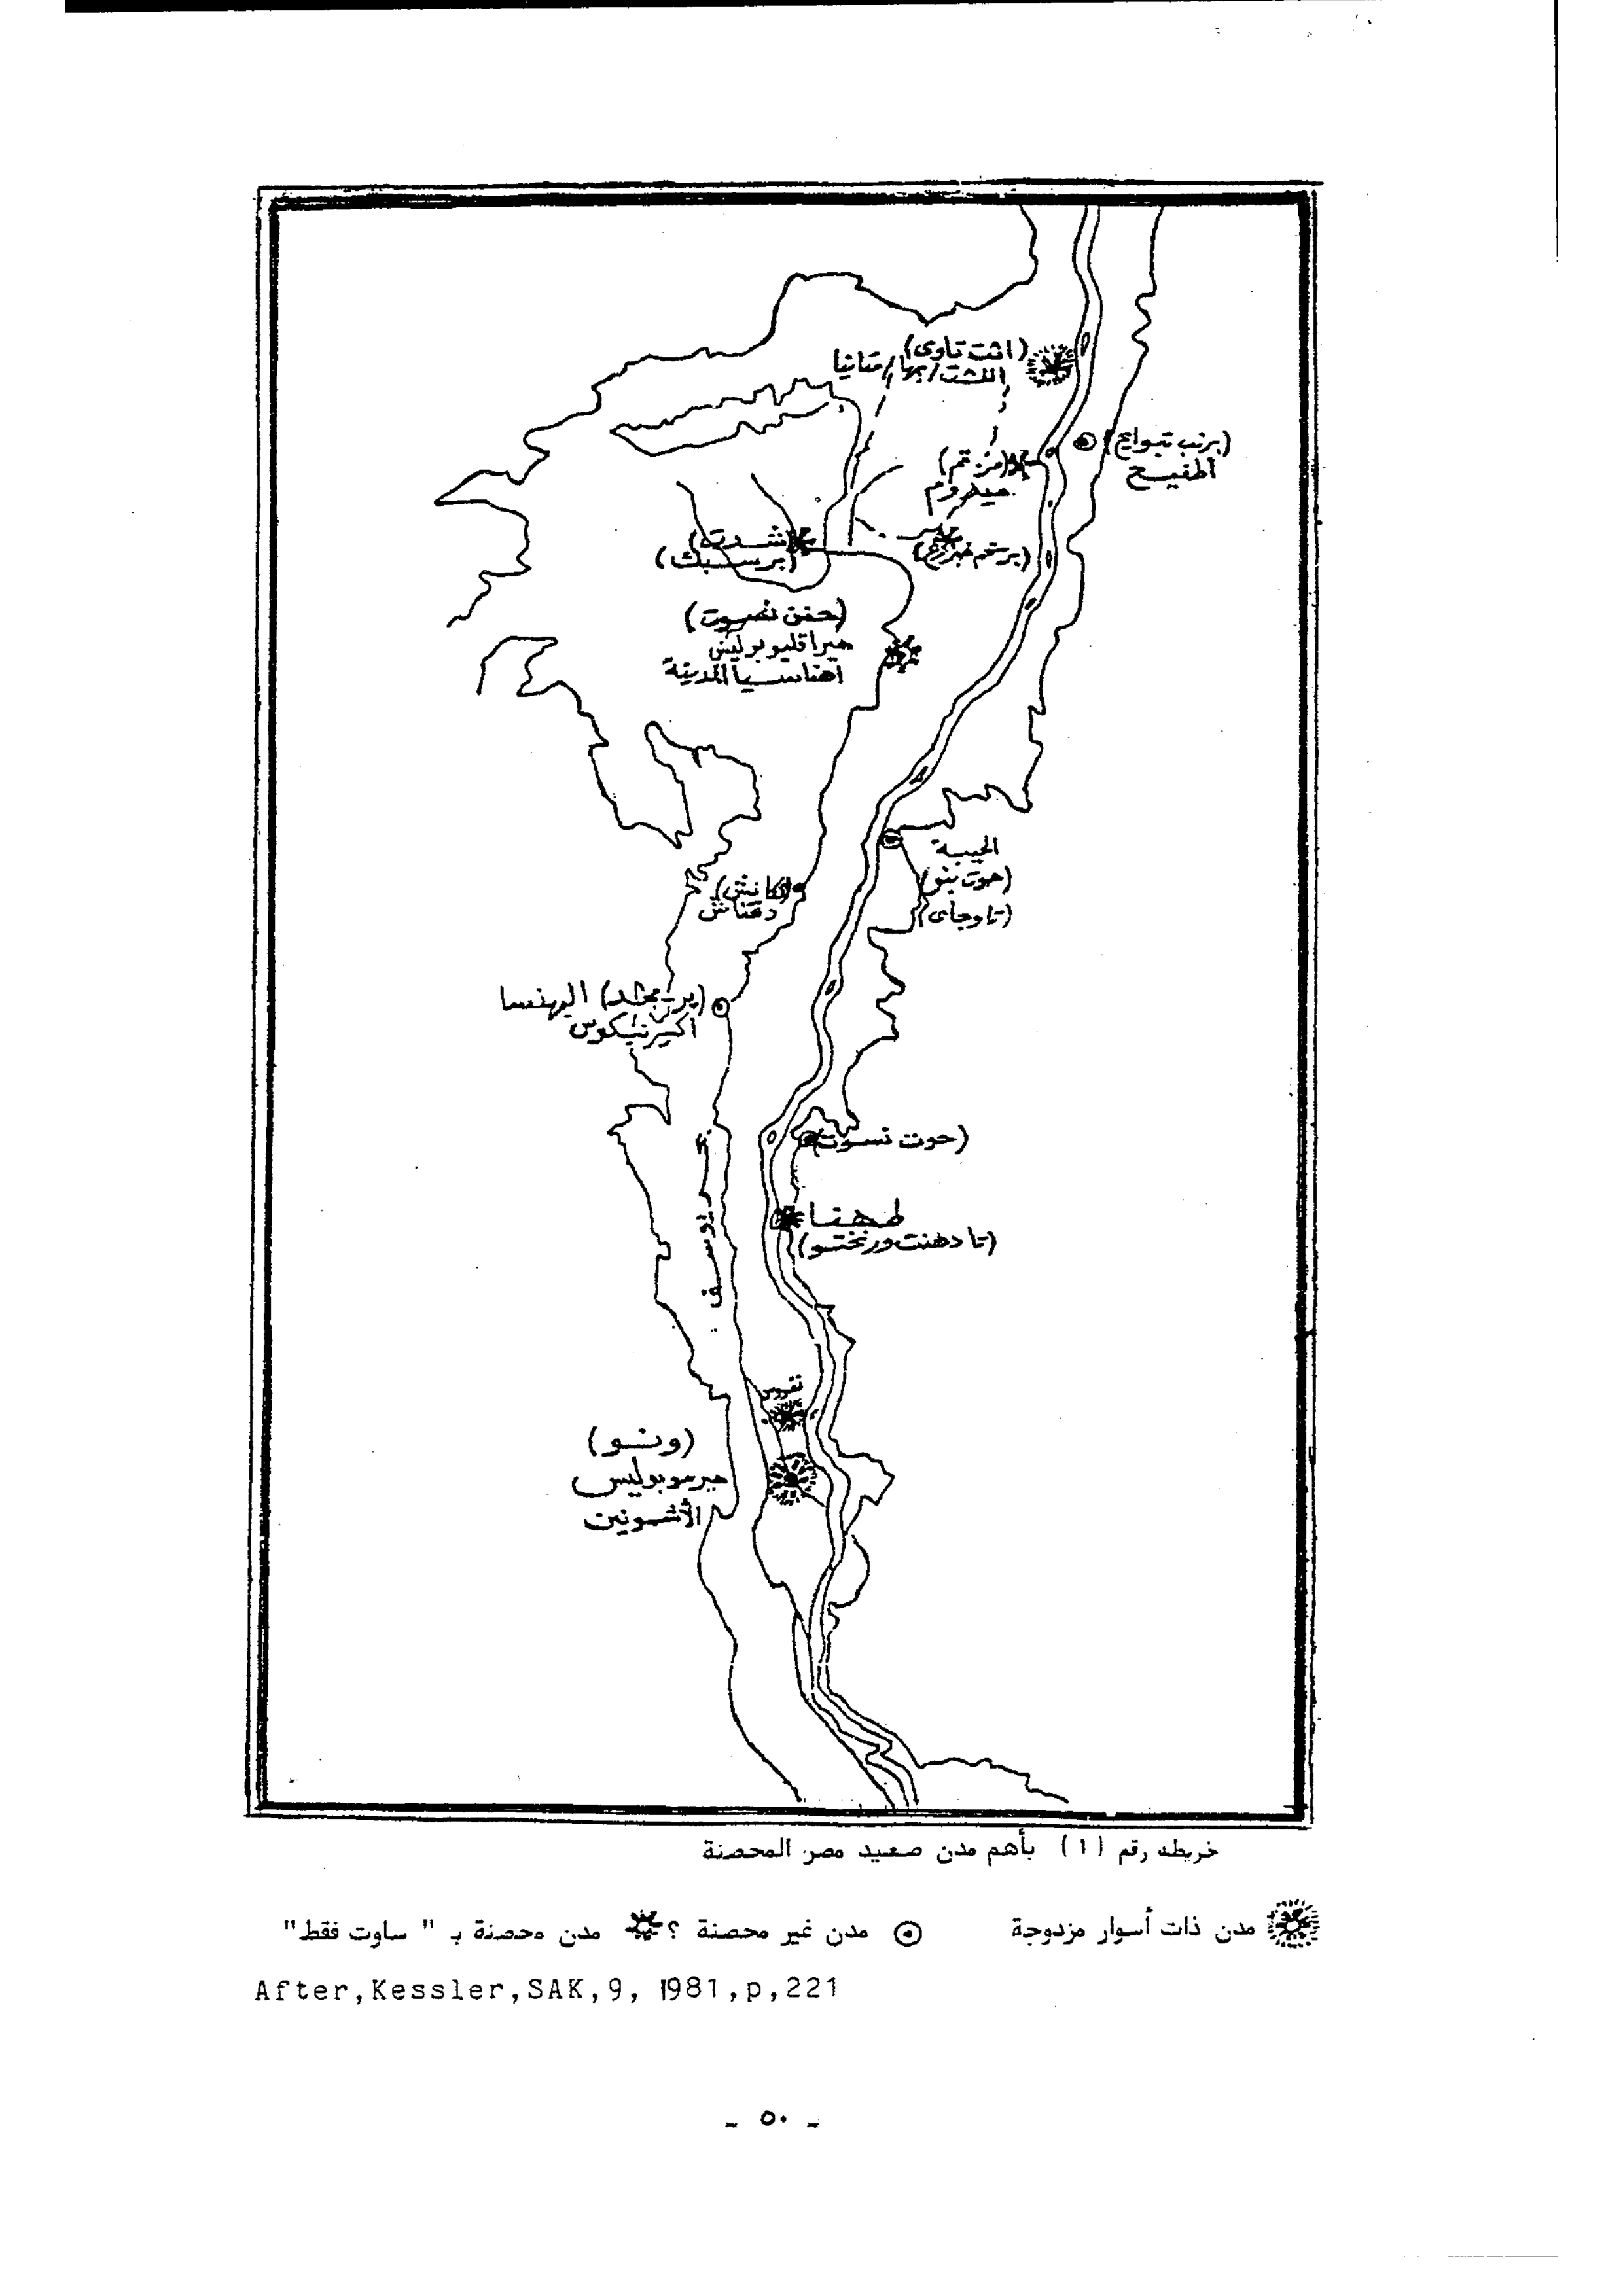 (اثت تاوى)
اللشت/بمها/متانيا
(برنب تبواج)
أطفيح
(مر تم)
ميدوم
(شدت)
(برسبك)
(حنن نسوت)
هيراقليوبوليس
اهناسيا المدينة
الحيبة
(حوت بنو)
(تاوجاى)
دهناش
البهنسا
(حوت نسوت)
بحر يوسف
طهنا
(تا دهنت ورنختو)
(ونو)
هيرموبوليس
الأشمونين
خريطه رقم (١) بأهم مدن صعيد مصر المحصنة
مدن ذات أسوار مزدوجة
مدن غير محصنة ؟ مدن محصنة بـ " ساوت فقط"
After,Kessler,SAK,9, 1981,p,221
- ٥٠ -